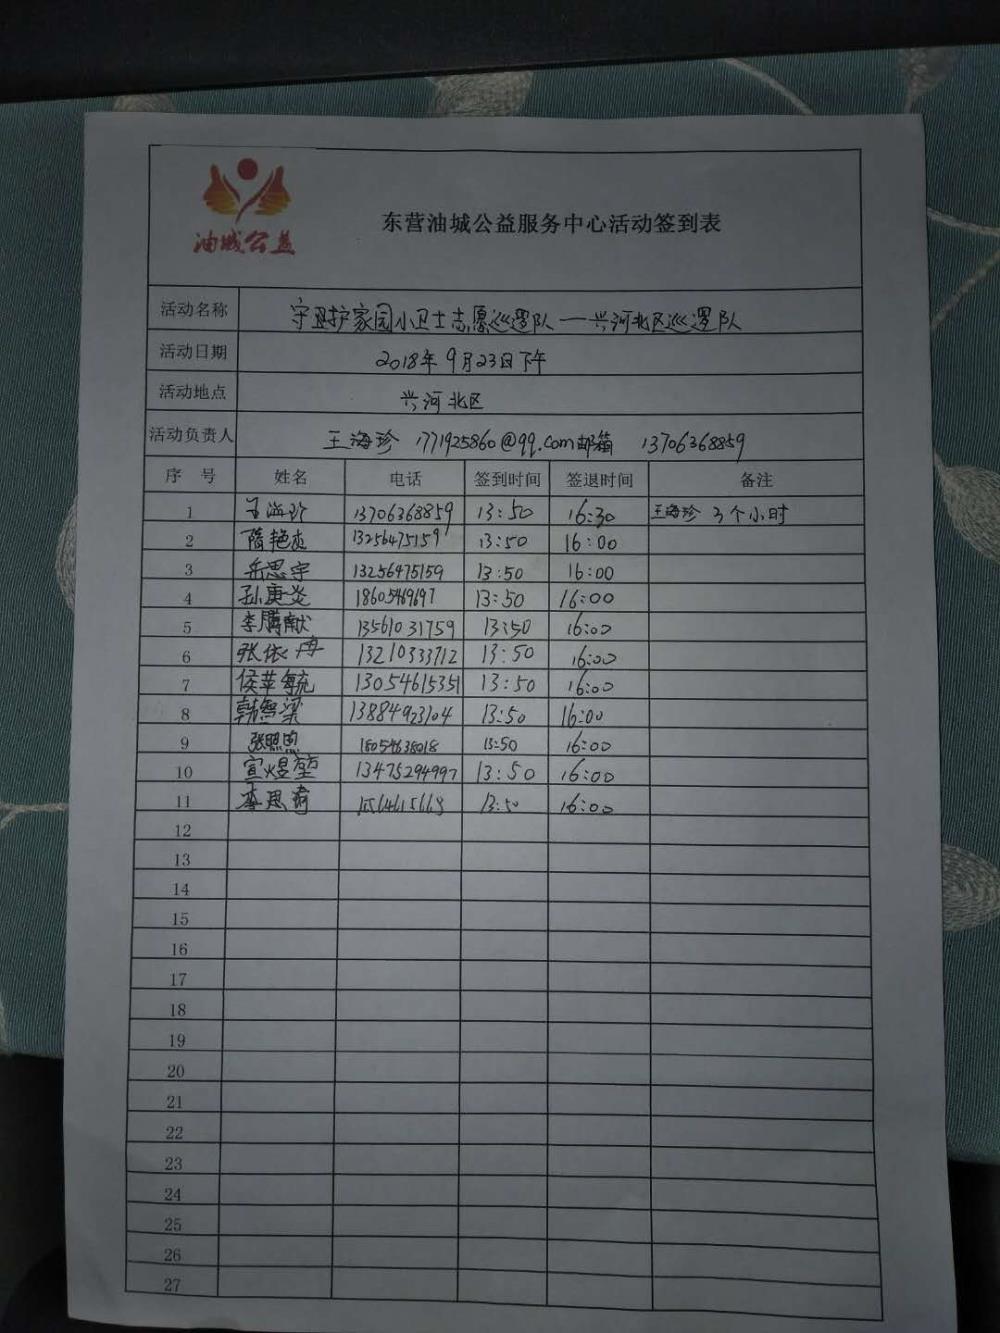 油城公益
东营油城公益服务中心活动签到表
活动名称 守卫护家园小卫士志愿巡逻队—兴河北区巡逻队
活动日期 2018年9月23日下午
活动地点 兴河北区
活动负责人 王海珍 1771925860@qq.com邮箱 13706368859
序 号 姓名 电话 签到时间 签退时间 备注
1 王海珍 13706368859 13:50 16:30 王海珍 3个小时
2 隋艳 13256475159 13:50 16:00
3 岳思宇 13256475159 13:50 16:00
4 孙庚炎 18605469697 13:50 16:00
5 李腾献 13561031759 13:50 16:00
6 张依冉 13210333712 13:50 16:00
7 侯苹毓 13054615351 13:50 16:00
8 韩智梁 13884923104 13:50 16:00
9 张照煦 18054638018 13:50 16:00
10 宣煜堃 13475294997 13:50 16:00
11 李思 13:50 16:00
12
13
14
15
16
17
18
19
20
21
22
23
24
25
26
27